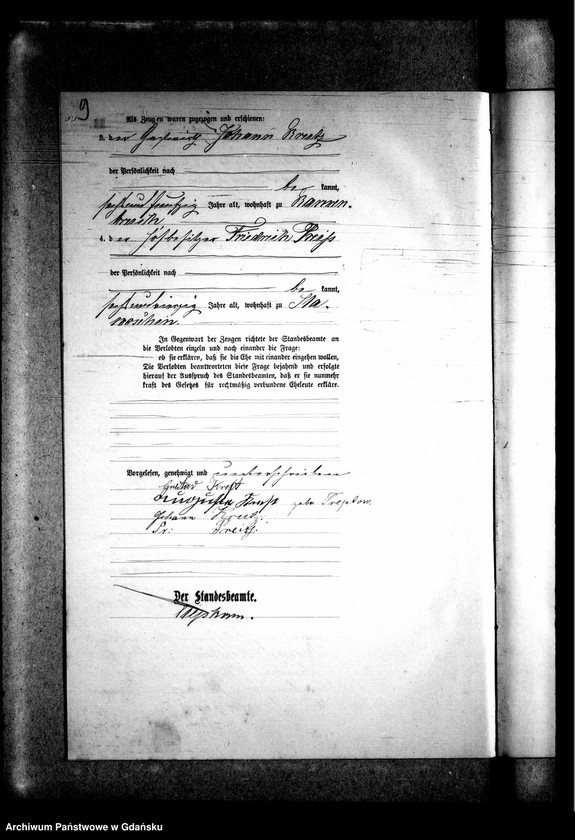 9
Als Zeugen waren zugezogen und erschienen:
3. der Gastwirth Johann Kreutz
der Persönlichkeit nach
be kannt,
sechsundfünfzig Jahre alt, wohnhaft zu
4. der Hofbesitzer Friedrich Preiß
der Persönlichkeit nach
be kannt,
sechsundvierzig Jahre alt, wohnhaft zu
In Gegenwart der Zeugen richtete der Standesbeamte an
die Verlobten einzeln und nach einander die Frage:
ob sie erklären, daß sie die Ehe mit einander eingehen wollen,
Die Verlobten beantworteten diese Frage bejahend und erfolgte
hierauf der Ausspruch des Standesbeamten, daß er sie nunmehr
kraft des Gesetzes für rechtmäßig verbundene Eheleute erkläre.
Vorgelesen, genehmigt und unterschrieben
Kreft
Auguste Kreft geb. Treptow
Johann Kreutz.
Fr: Preiß.
Der Standesbeamte.
Archiwum Państwowe w Gdańsku